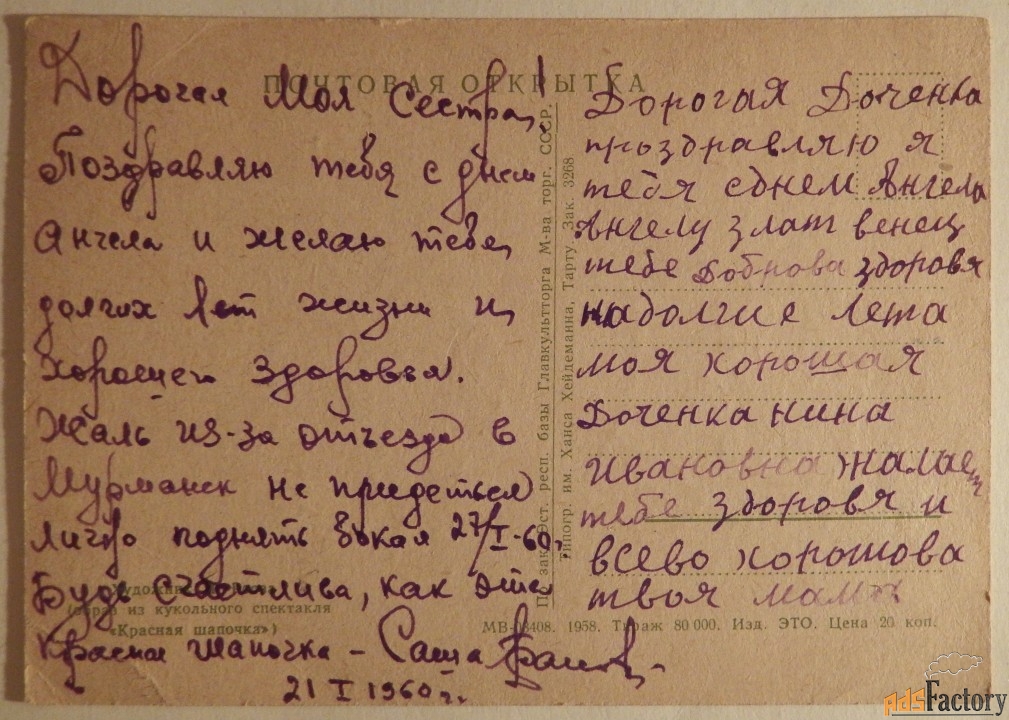 ПОЧТОВАЯ ОТКРЫТКА
Дорогая Моя Сестра!
Поздравляю тебя с днем
ангела и желаю тебе
долгих лет жизни и
хорошего здоровья.
Жаль из-за отъезда в
Мурманск не придеться
лично поднять бокал 27/I-60г.
Будь счастлива, как эта
Красная шапочка - Саша
21 I 1960г.
Дорогая Доченка
проздравляю я
тебя сднем Ангела
Ангелу злат венец
тебе доброва здоровя
надолгие лета
моя хорошая
Доченка нина
Ивановна жалает
тебе здоровя и
всево хорошова
твоя мама
По зак. Эст. респ. базы Главкультторга М-ва торг. СССР.
Типогр. им. Ханса Хейдеманна, Тарту. Зак. 3268
из кукольного спектакля
«Красная шапочка»)
МВ-08408. 1958. Тираж 80 000. Изд. ЭТО. Цена 20 коп.
pdsFactory